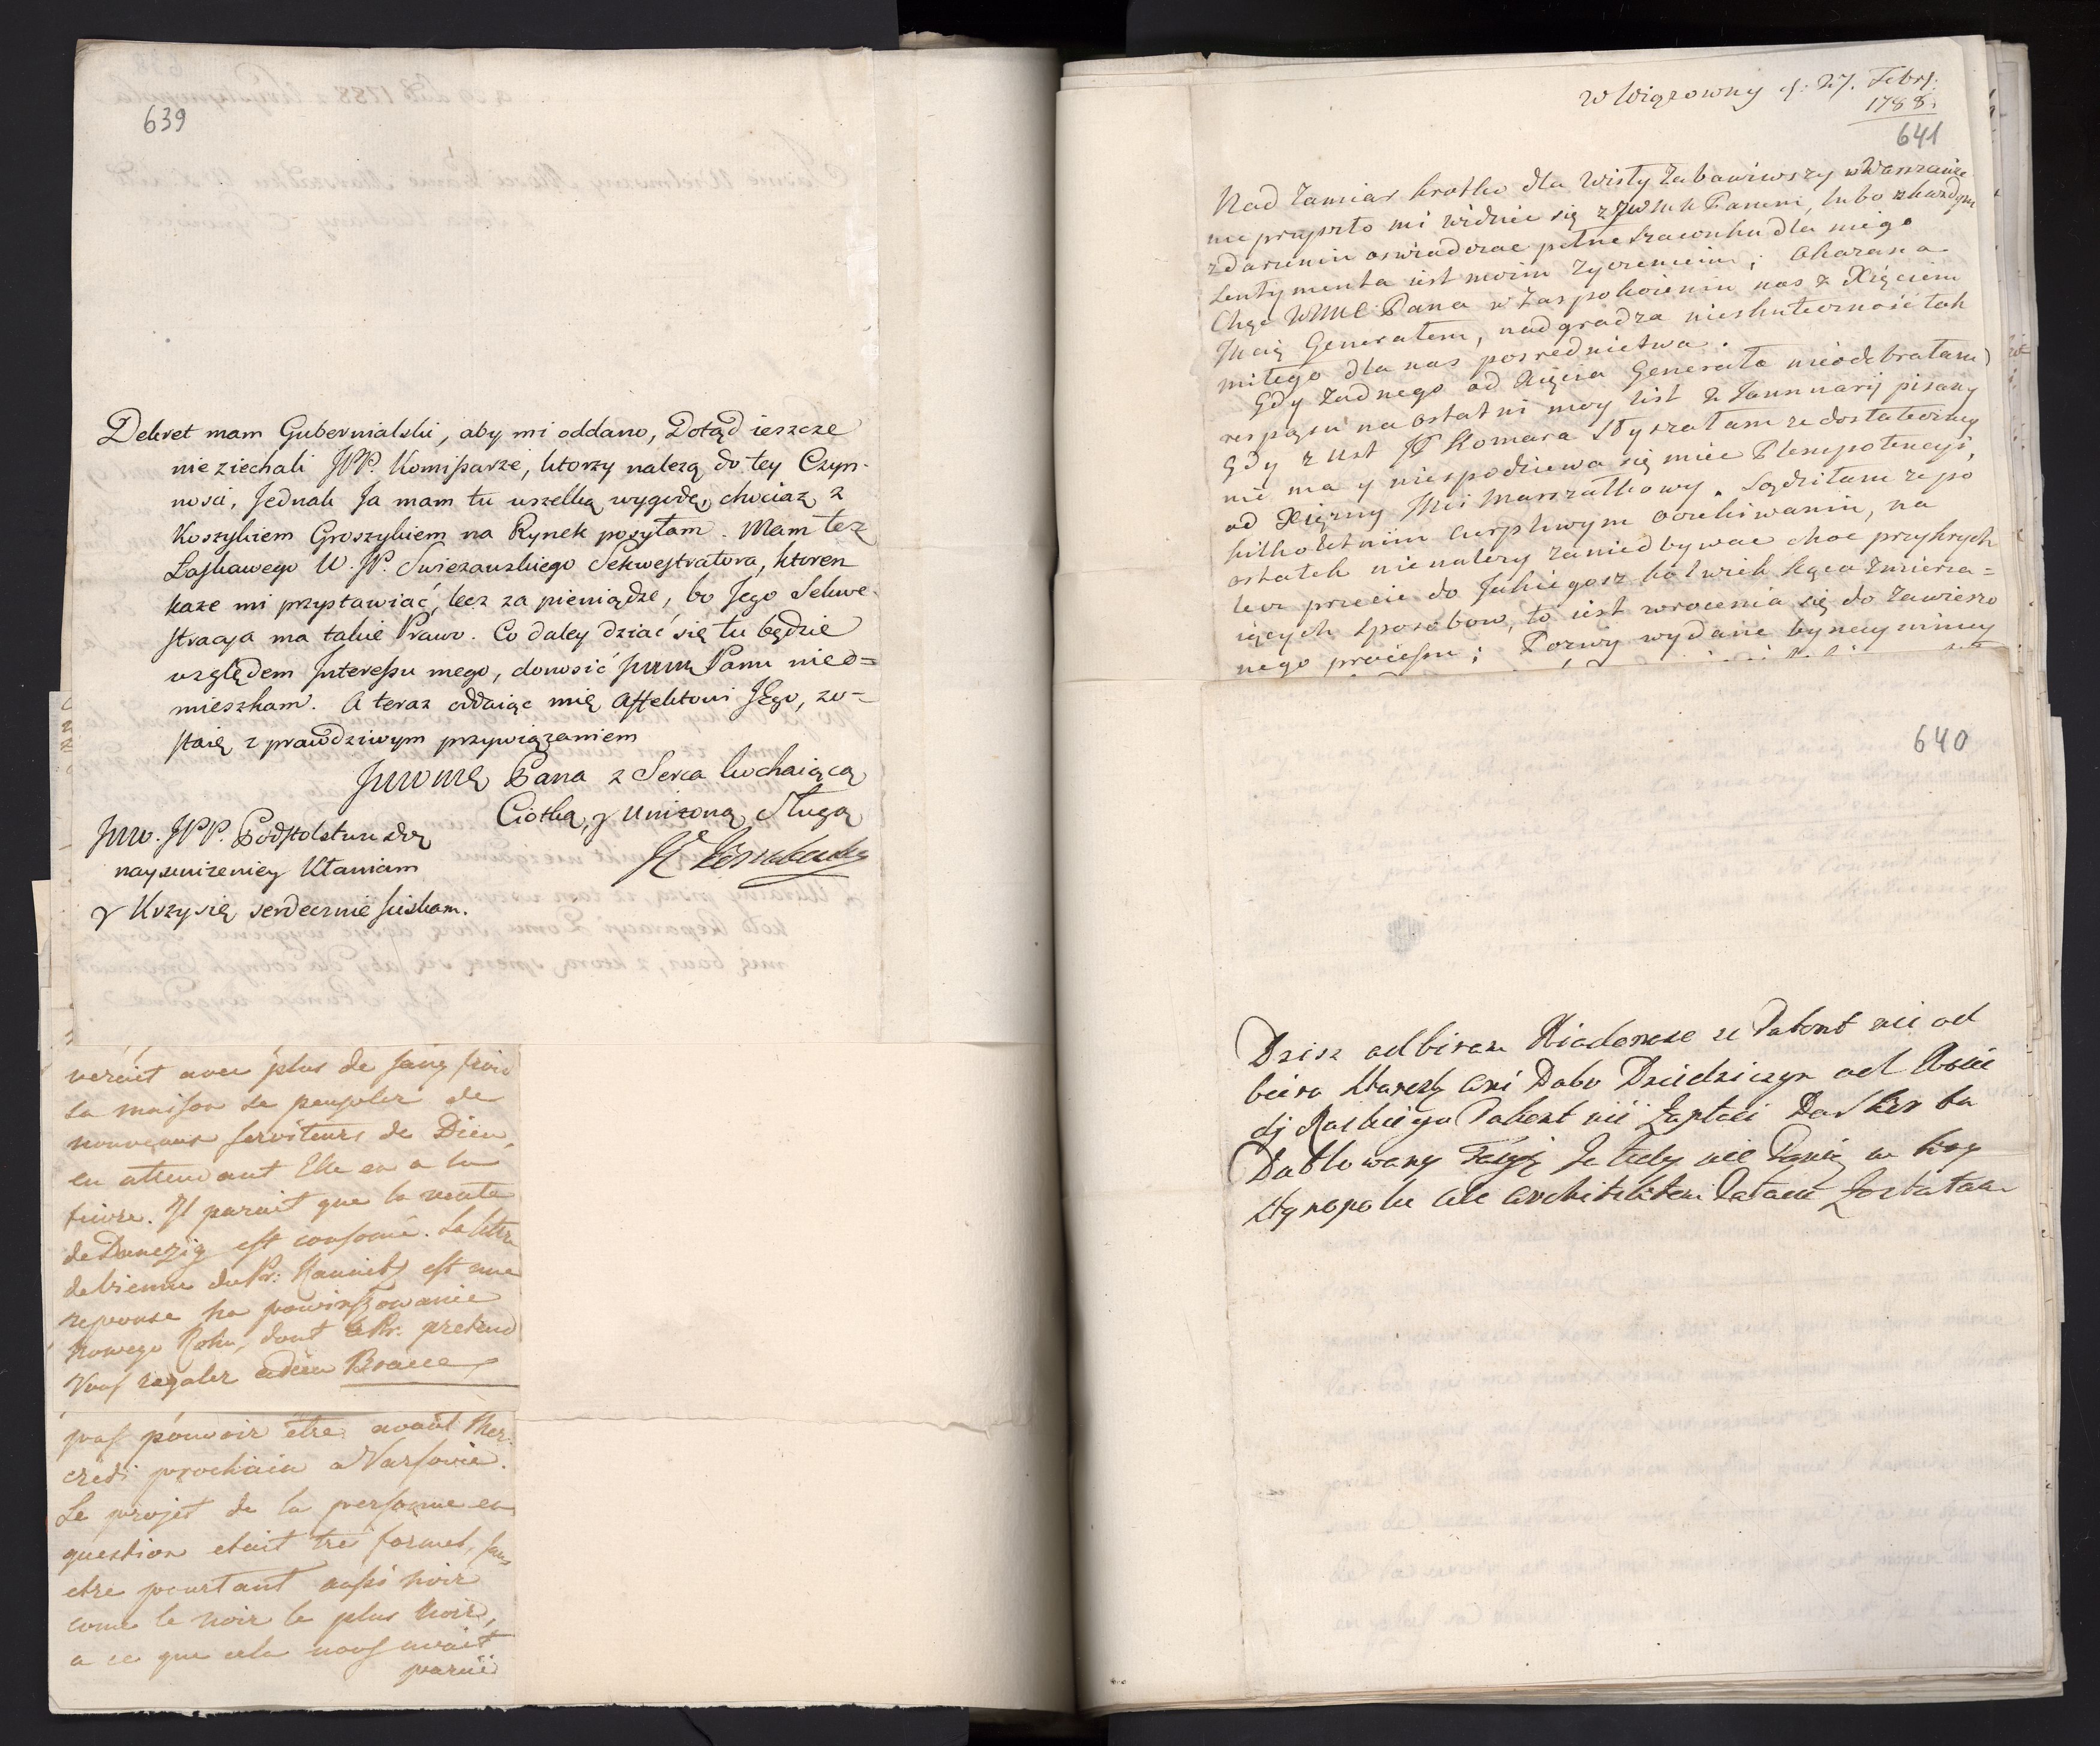 639
Dekret mam Gubernialski, aby mi oddano, Dotąd ieszcze
nie ziechali JPP. Komissarze, ktorzy nalezą do tey Czyn-
nosci, Jednak Ja mam tu wszelką wygodę, chociaz z
Koszykiem Groszykiem na Rynek posyłam. Mam tez
Łaskawego W. JP. Swiezawskiego Sekwestratora, ktoren
kaze mi przystawiać, lecz za pieniądze, bo Jego Sekwe-
stracya ma takie Prawo. Co daley dziać się tu będzie
względem Interessu mego, donosić Panu nieo=
mieszkam. A teraz oddaiąc mię Affektowi JEgo, zo-
staię z prawdziwym przywiązaniem
Pana z Serca kochaiącą
Ciotką, y Unizoną Sługą
JPP. Podstolstwu
nayunizeniey Kłaniam
y Krzysię serdecznie sciskam.
veroit avec plus de sang froid
sa maison se peupler de
nouveaux serviteurs de Dieu,
en attendant Elle en a la
fievre. Il paroit que la vente
de Danczig est consomé. La lettre
de Vienne du Pr: Kaunitz est une
reponse na powinszowanie
Nowego Roku, dont le Pr. pretend
Vous regaler adieu Brance
pas pouvoir être avant Mer-
credi prochain a Varsovie.
Le projet de la personne en
question etait tres formel, sans
etre pourtant aussi noir
come le noir le plus noir,
a ce que cela nous avait
parüe
w Wiązowny d: 27. Febr:
1788.
641
Nad Zamiar krotko dla Wisły Zabawiwszy w Warszawie
nie przyszło mi widzieć się z Panem, lubo w każdym
zdarzeniu oswiadczać pełne szacunku dla niego
Sentymenta iest moim zyczeniem; Okazana
Chęć WMC Pana w Zaspokoieniu nas z Xięciem
Jmcią Generałem, nadgradza nieskuteczność tak
miłego dla nas posrednictwa.
Gdy Zadnego od Xięcia Generała nieodebrałam
respąsu na ostatni moy list 2 Januarij pisany
Gdy z Ust JP Komara Słyszałam ze dostateczney
nie ma y niespodziewa się mieć Plenipotencyi,
od Xięzny Jmci Marszałkowy. Sądziłam ze po
kilkoletnim cierpliwym oczekiwaniu, na
ostatek nienalezy zaniedbywać choć przykrych
lecz przecie do Jakiegosz kolwiek końca Zmierza=
iących sposobow, to iest wrocenia się do Zawieszo
nego processu; Pozwy wydane bynaymniey
640
Dzisz odbiram Wiadomosc ze Patent nie od
biera ani Dabo Dziedziczyn od
Patent nie Zapłaci
Ja tedy nie Panią w
ale Architektem Pałacu Zostałam